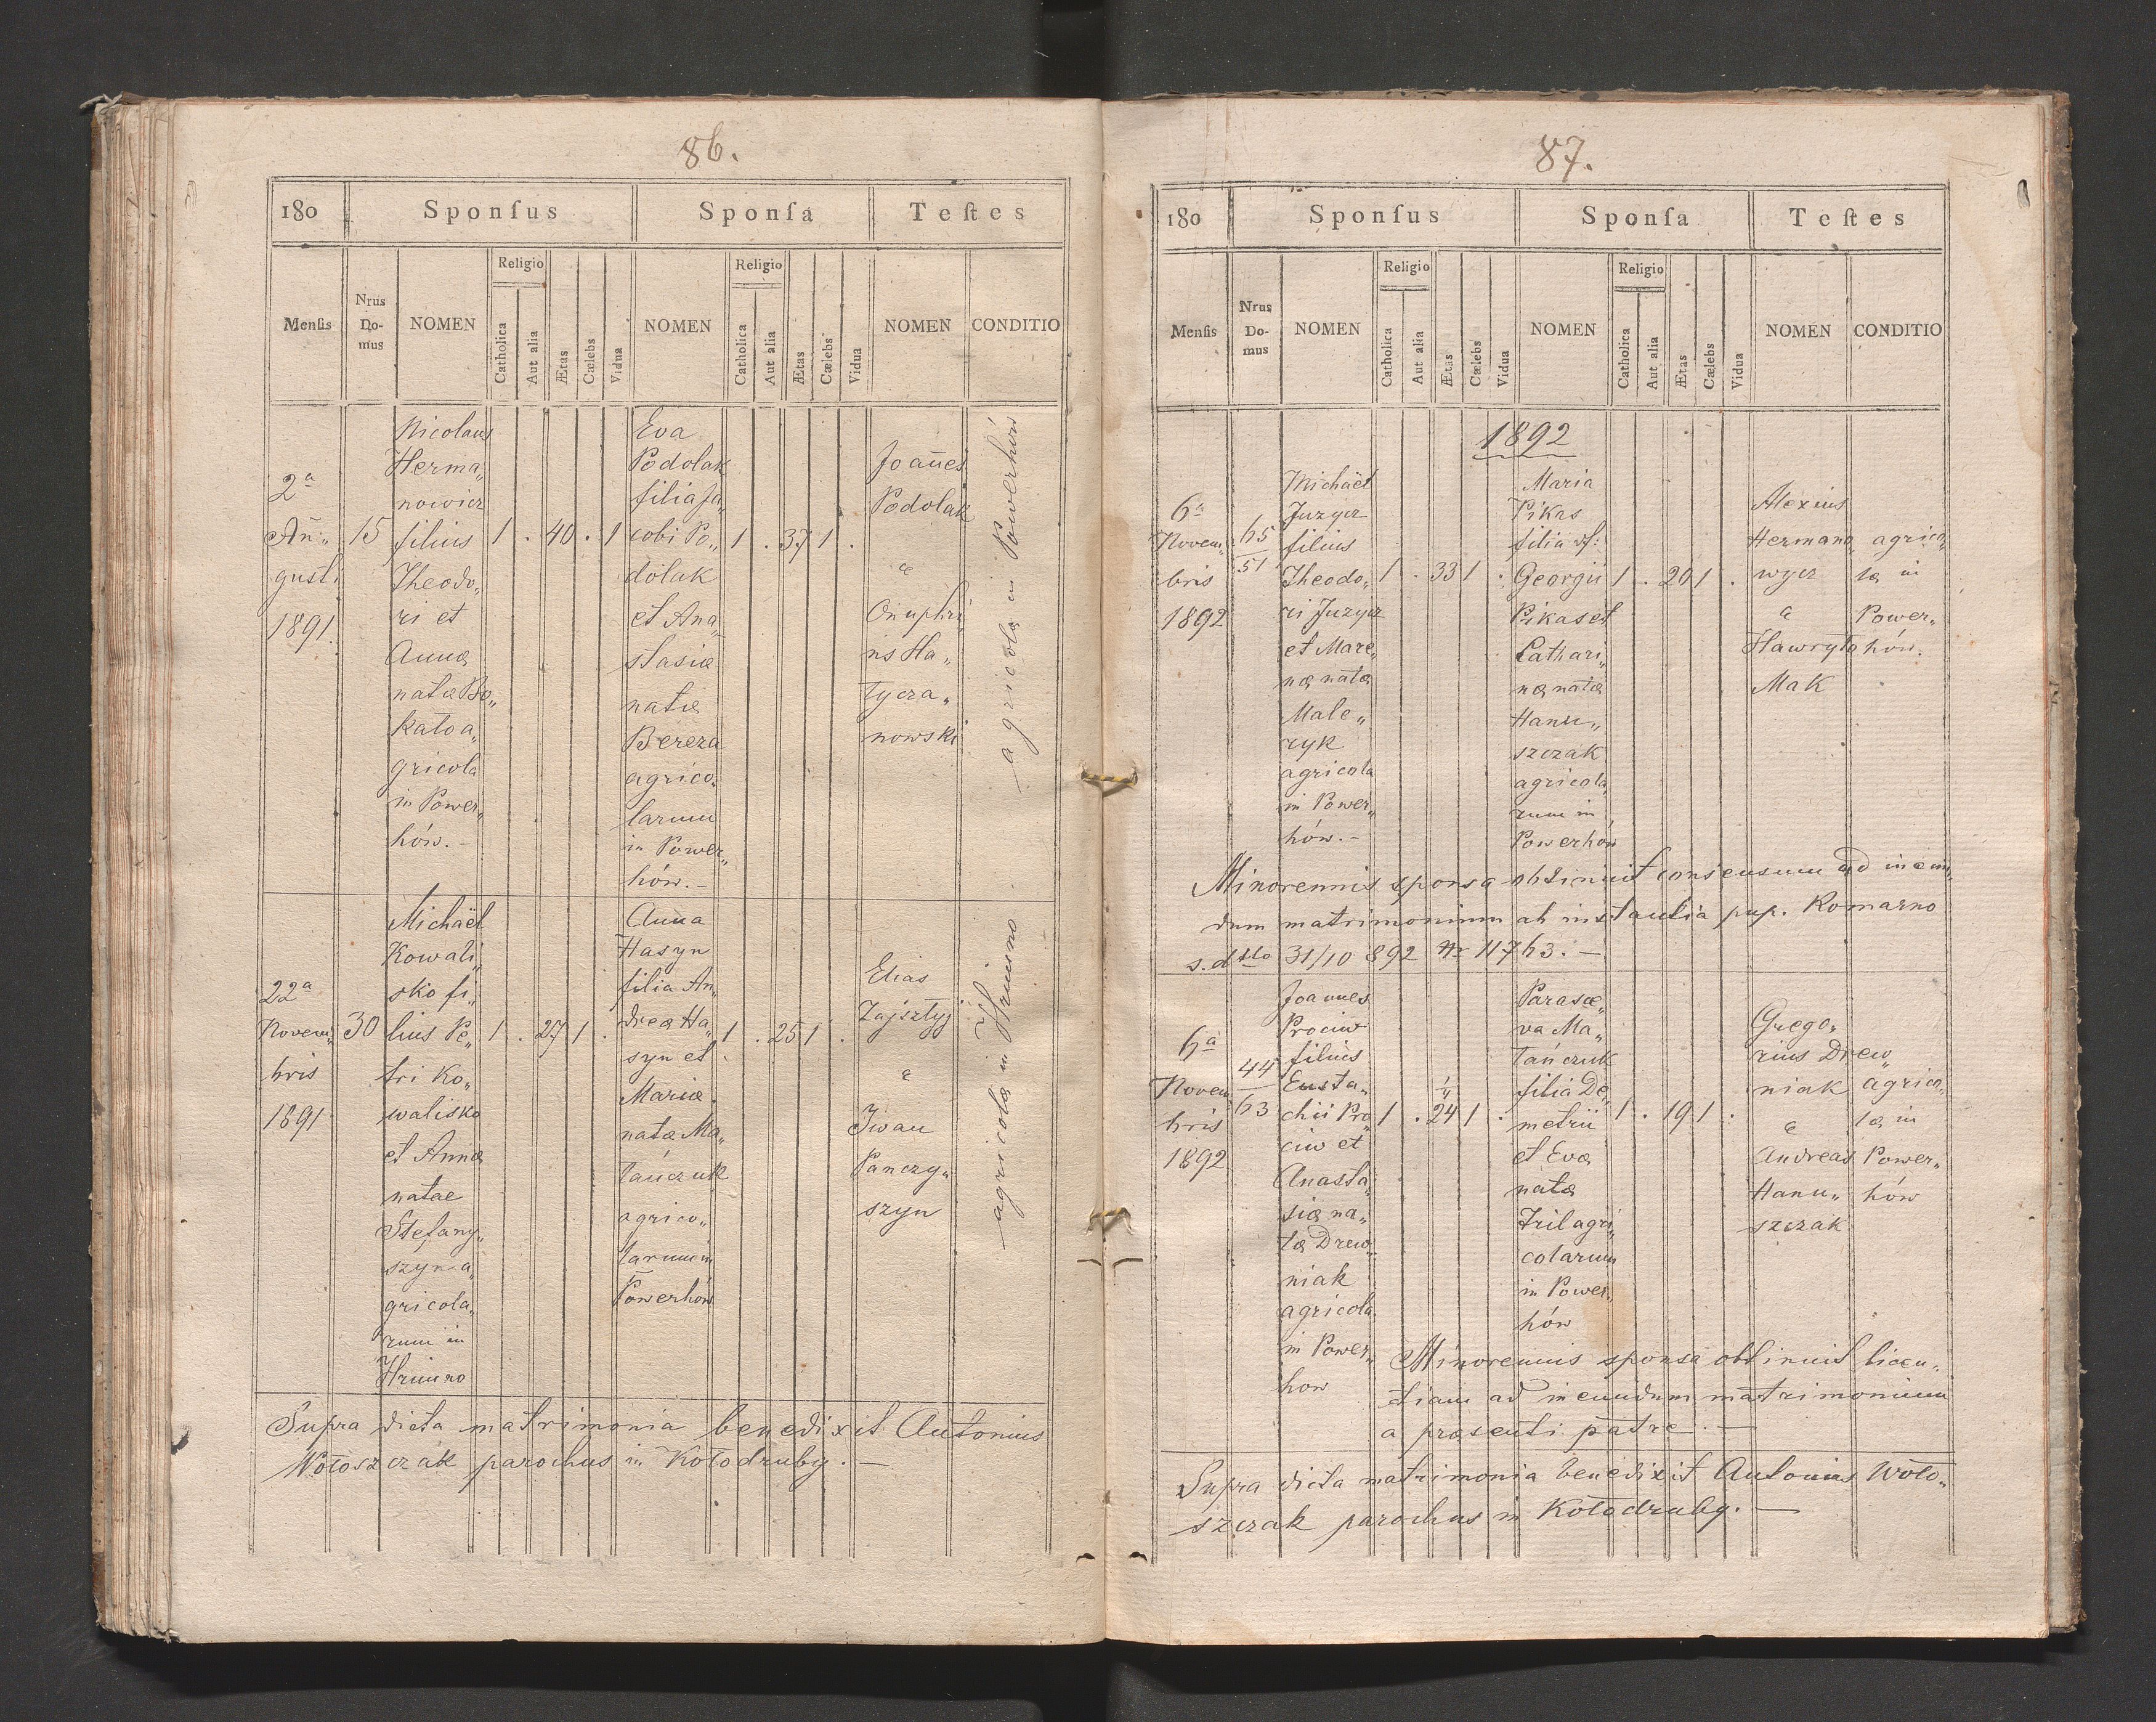 86.
180 Sponſus Sponſa Teſtes
Menſis Nrus Do- mus NOMEN Religio Catholica Aut alia Ætas Cælebs Vidua NOMEN Religio Catholica Aut alia Ætas Cælebs Vidua NOMEN CONDITIO
2ª
Au„
gusti
1891.
15
Nicolaus
Herma„
nowicz
filius
Theodo„
ri et
Annæ
natæ Bo„
kato a„
gricola
in Power„
hów.-
1 . 40 . 1
Eva
Podolak
filia Ja„
cobi Po„
dolak
et Ana„
stasiæ
natæ
Bereza
agrico„
larum
in Power„
hów.-
1 . 37 1 .
Joañes
Podolak
&
Onuphri„
us Ha„
tycza„
nowski
agricolæ in Powerhów
22ª
Novem„
bris
1891
30
Michaël
Kowali„
sko fi„
lius Pe„
tri Ko„
walisko
et Annæ
natae
Stefany„
szyn a„
gricola„
rum in
Hrimno
1 . 27 1 .
Anna
Hasyn
filia An„
dreæ Ha„
syn et
Mariæ
natæ Ma„
tańczuk
agrico„
larum in
Powerhów
1 . 25 1 .
Elias
Zajsztyj
&
Iwan
Panczy„
szyn
agricolæ in Hrimno
Supra dicta matrimonia benedixit Antonius
Wołoszczak parochus in Kołodruby.-
87.
180 Sponſus Sponſa Teſtes
Menſis Nrus Do- mus NOMEN Religio Catholica Aut alia Ætas Cælebs Vidua NOMEN Religio Catholica Aut alia Ætas Cælebs Vidua NOMEN CONDITIO
1892
6ª
Novem„
bris
1892
65
51
Michaël
Juzycz
filius
Theodo„
ri Juzycz
et Mare„
næ natæ
Male„
ryk
agricola
in Power„
hów.-
1 . 33 1 .
Maria
Pikas
filia
Georgii
Pikas et
Cathari„
næ natæ
Hanu„
szczak
agricola„
rum in
Powerhów
1 . 20 1 .
Alexius
Hermano„
wycz
&
Hawryło
Mak
agrico„
læ in
Power„
hów.
Minorennis sponsa obtinuit consensum ad ineun„
dum matrimonium ab instantia pup. Komarno
s. dtto 31/10 892 Nr 11763.-
6ª
Novem
bris
1892
44
63
Joannes
Prociw
filius
Eusta„
chii Pro„
ciw et
Anasta„
siæ na„
tæ Drew„
niak
agricola
in Power„
how
1 . 24 1 .
Parasce„
va Ma„
tańczuk
filia De„
metrii
et Evæ
natæ
Tril agri„
colarum
in Power„
hów
1 . 19 1 .
Grego„
rius Drew„
niak
&
Andreas
Hanu„
szczak
agrico„
læ in
Power„
hów
Minorennis sponsa obtinuit licen„
tiam ad ineundum matrimonium
a præsenti patre.-
Supra dicta matrimonia benedixit Antonius Woło„
szczak parochus in Kołodruby.-